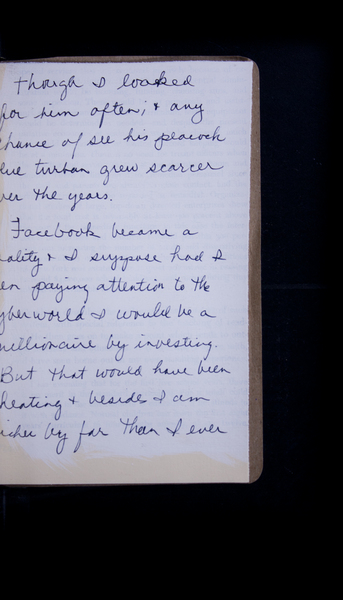 though I looked
for him often; & any
chance of see his peacock
blue turban grew scarcer
over the years.
Facebook became a
reality & I suppose had I
been paying attention to the
cyberworld I would be a
millionaire by investing.
But that would have been
cheating & besides I am
richer by far than I ever